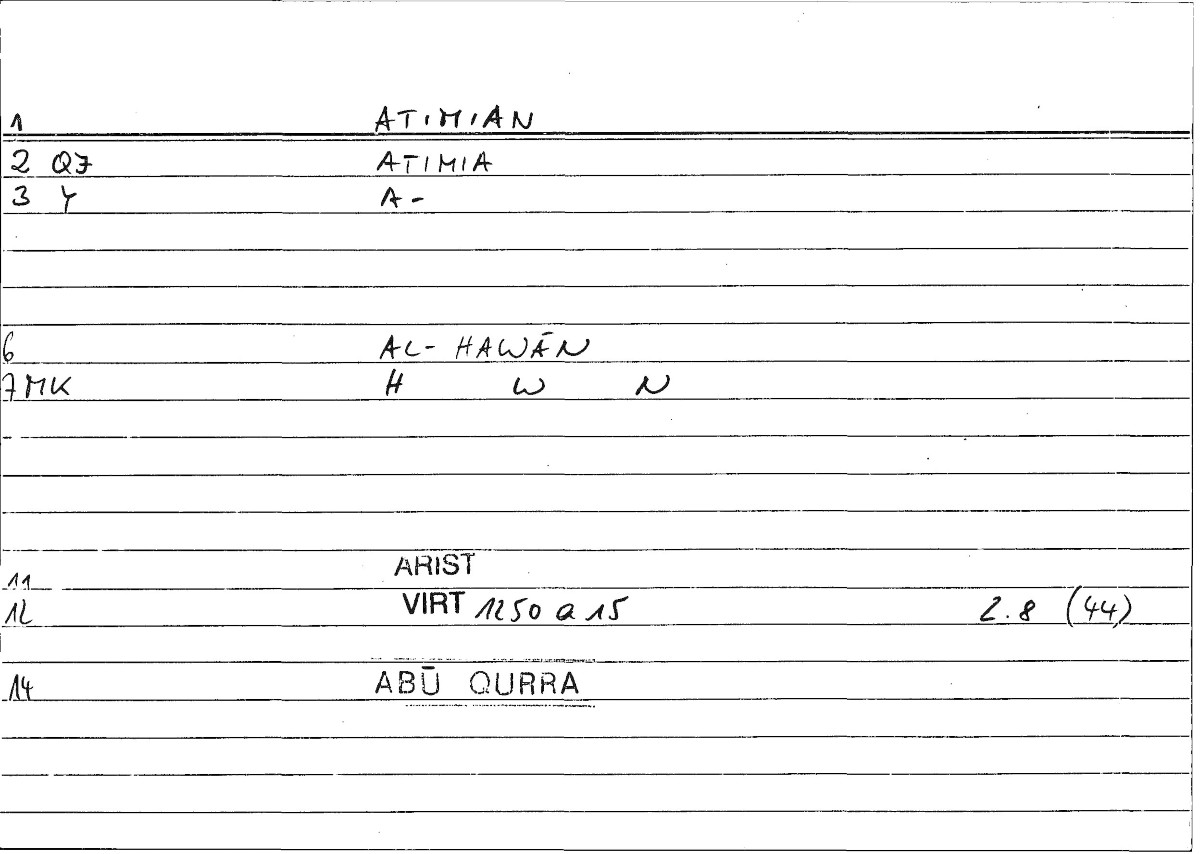 1 ATIMIAN
2 Q7 ATIMIA
3 Y A-
6 AL- HAWĀN
7 MK H W N
11 ARIST
12 VIRT 1250 a 15 2.8 (44)
14 ABŪ QURRA